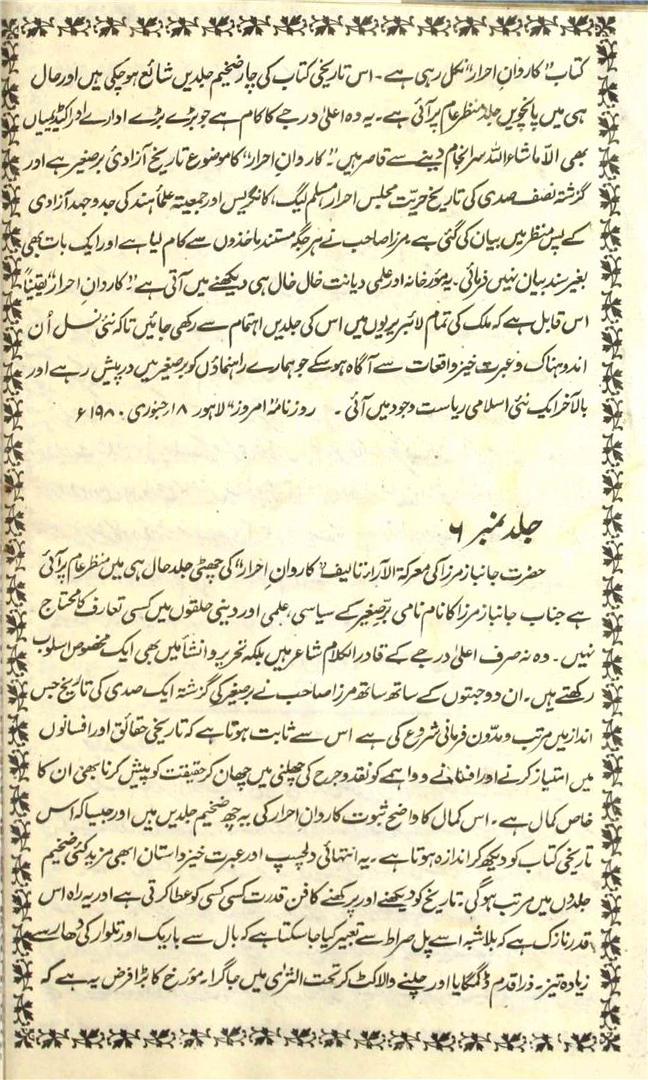 کتاب "کاروانِ احرار" نکل رہی ہے۔ اس تاریخی کتاب کی چار ضخیم جلدیں شائع ہو چکی ہیں اور حال
ہی میں پانچویں جلد منظر عام پر آئی ہے۔ یہ وہ اعلیٰ درجے کا کام ہے جو بڑے بڑے ادارے اور اکیڈیمیاں
بھی الّا ماشاءاللہ سرانجام دینے سے قاصر ہیں "کاروانِ احرار" کا موضوع تاریخ آزادیٔ برصغیر ہے اور
گزشتہ نصف صدی کی تاریخ حریت مجلس احرار، مسلم لیگ، کانگریس اور جمعیۃ علمأ ہند کی جدوجہد آزادی
کے پس منظر میں بیان کی گئی ہے۔ مرزا صاحب نے ہر جگہ مستند ماخذوں سے کام لیا ہے اور ایک بات بھی
بغیر سند بیان نہیں فرمائی۔ یہ مؤرخانہ اور علمی دیانت خال خال ہی دیکھنے میں آتی ہے "کاروانِ احرار" یقیناً
اس قابل ہے کہ ملک کی تمام لائبریریوں میں اس کی جلدیں اہتمام سے رکھی جائیں تاکہ نئی نسل اُن
اندوہناک و عبرت خیز واقعات سے آگاہ ہو سکے جو ہمارے راہنماؤں کو برصغیر میں درپیش رہے اور
بالآخر ایک نئی اسلامی ریاست وجود میں آئی۔ روزنامہ "امروز" لاہور ۱۸ جنوری ۱۹۸۰ء
جلد نمبر ۶
حضرت جانباز مرزا کی معرکۃ الآرا تالیف "کاروانِ احرار" کی چھٹی جلد حال ہی میں منظر عام پر آئی
ہے جناب جانباز مرزا کا نام نامی برِّصغیر کے سیاسی، علمی اور دینی حلقوں میں کسی تعارف کا محتاج
نہیں۔ وہ نہ صرف اعلیٰ درجے کے قادر الکلام شاعر ہیں بلکہ تحریر و انشأ میں بھی ایک مخصوص اسلوب
رکھتے ہیں۔ ان دو جہتوں کے ساتھ ساتھ مرزا صاحب نے برصغیر کی گزشتہ ایک صدی کی تاریخ جس
انداز میں مرتب و مدوّن فرمانی شروع کی ہے اس سے ثابت ہوتا ہے کہ تاریخی حقائق اور افسانوں
میں امتیاز کرنے اور افسانے و واہمے کو نقد و جرح کی چھلنی میں چھان کر حقیقت کو پیش کرنا بھی ان کا
خاص کمال ہے۔ اس کمال کا واضح ثبوت کاروانِ احرار کی یہ چھ ضخیم جلدیں ہیں اور جیسا کہ اس
تاریخی کتاب کو دیکھ کر اندازہ ہوتا ہے۔ یہ انتہائی دلچسپ اور عبرت خیز داستان ابھی مزید کئی ضخیم
جلدوں میں مرتب ہو گی۔ تاریخ کو دیکھنے اور پرکھنے کا فن قدرت کسی کسی کو عطا کرتی ہے اور یہ راہ اس
قدر نازک ہے کہ بلاشبہ اسے پل صراط سے تعبیر کیا جا سکتا ہے کہ بال سے باریک اور تلوار کی دھار سے
زیادہ تیز۔ ذرا قدم ڈگمگایا اور چلنے والا کٹ کر تحت الثریٰ میں جا گرا۔ مؤرخ کا بڑا فرض یہ ہے کہ